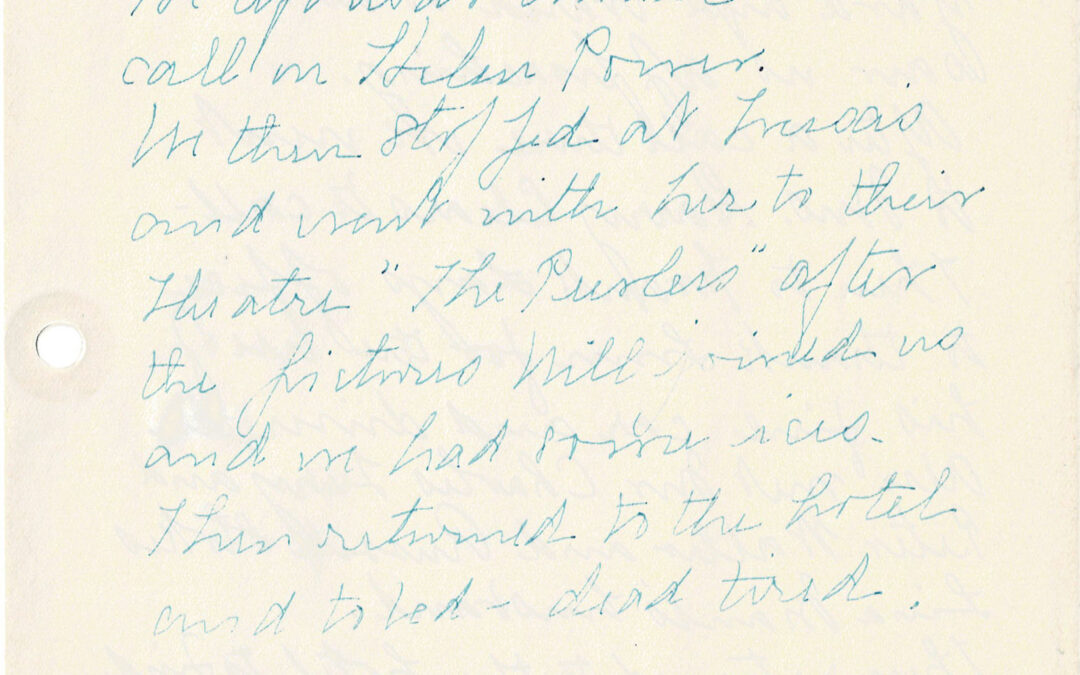 call on Helen Power.
We then stopped at
and went with her to their
Theatre "The Peerless" after
the pictures Will joined us
and we had some ices.
Then returned to the hotel
and to bed - dead tired.